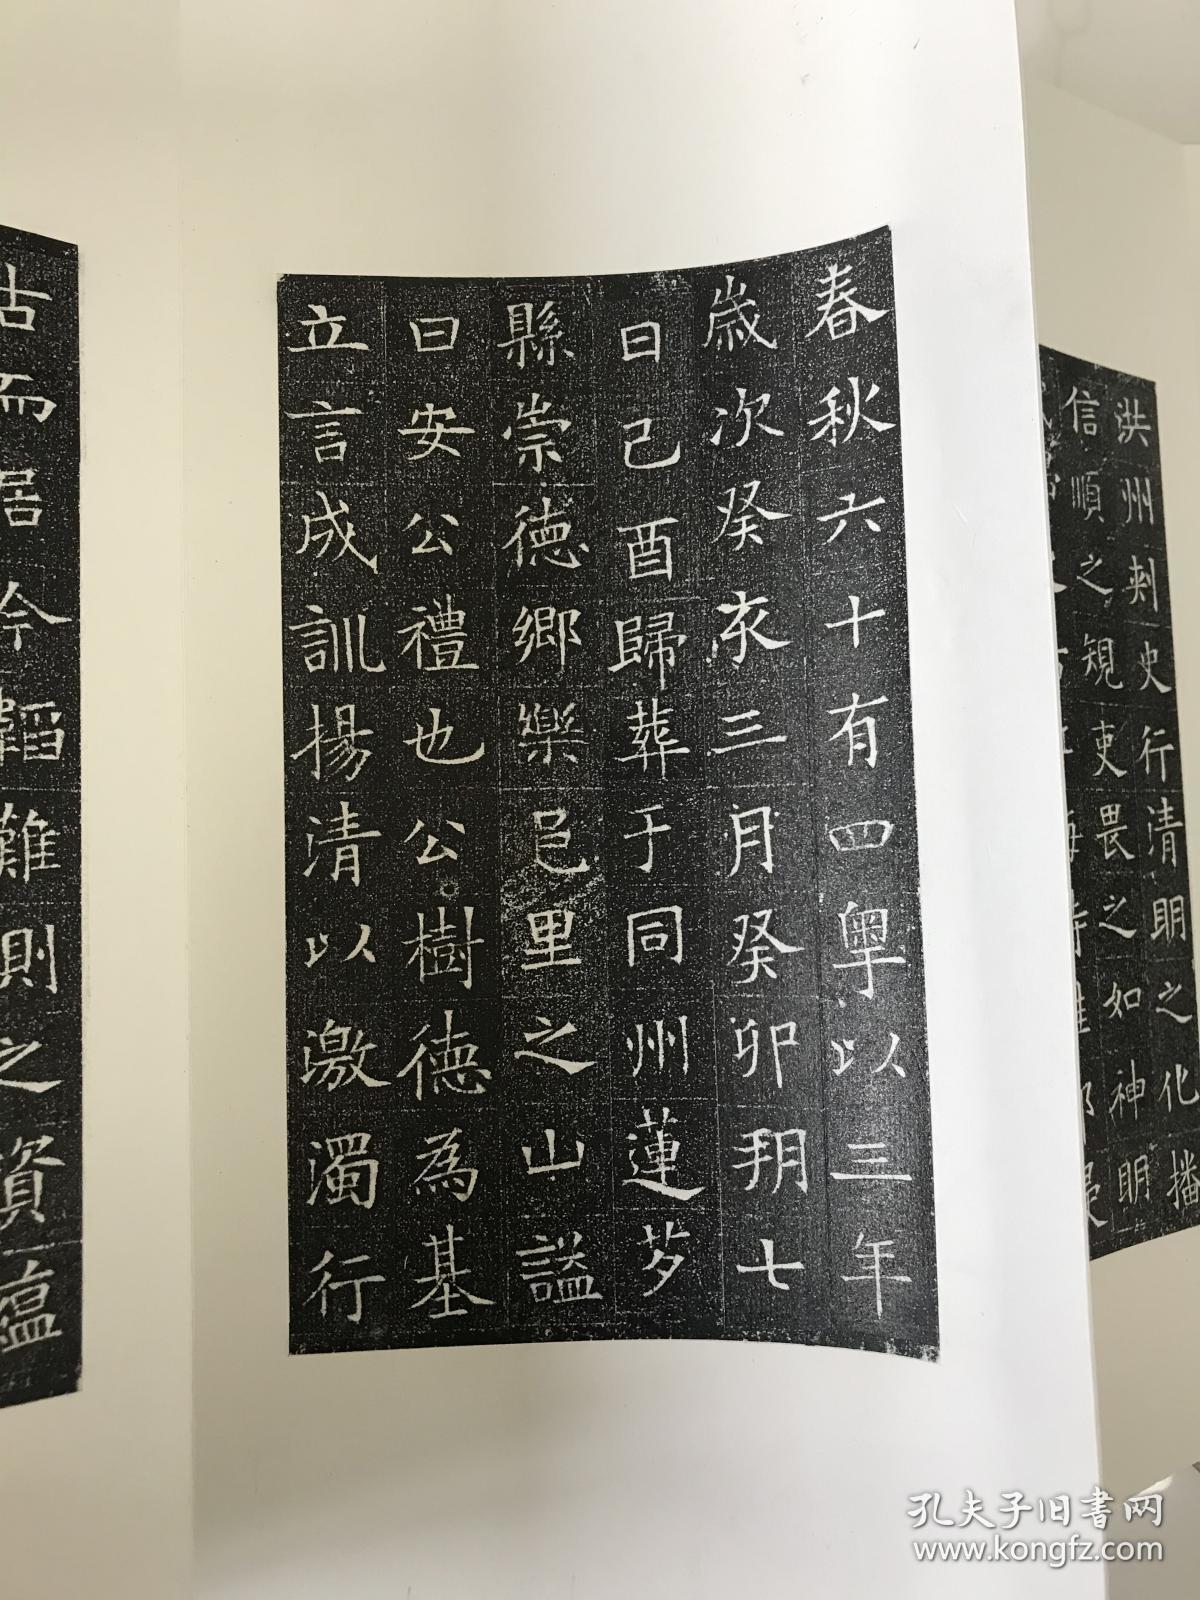 洪州刺史行清明之化播
信順之規吏畏之如神明
春秋六十有四粤以三年
歲次癸亥三月癸卯朔七
日己酉歸葬于同州蓮芍
縣崇德鄉樂邑里之山謚
曰安公禮也公樹德為基
立言成訓揚清以激濁行
古而居今韜難測之資蘊
孔夫子旧書网
www.kongfz.com